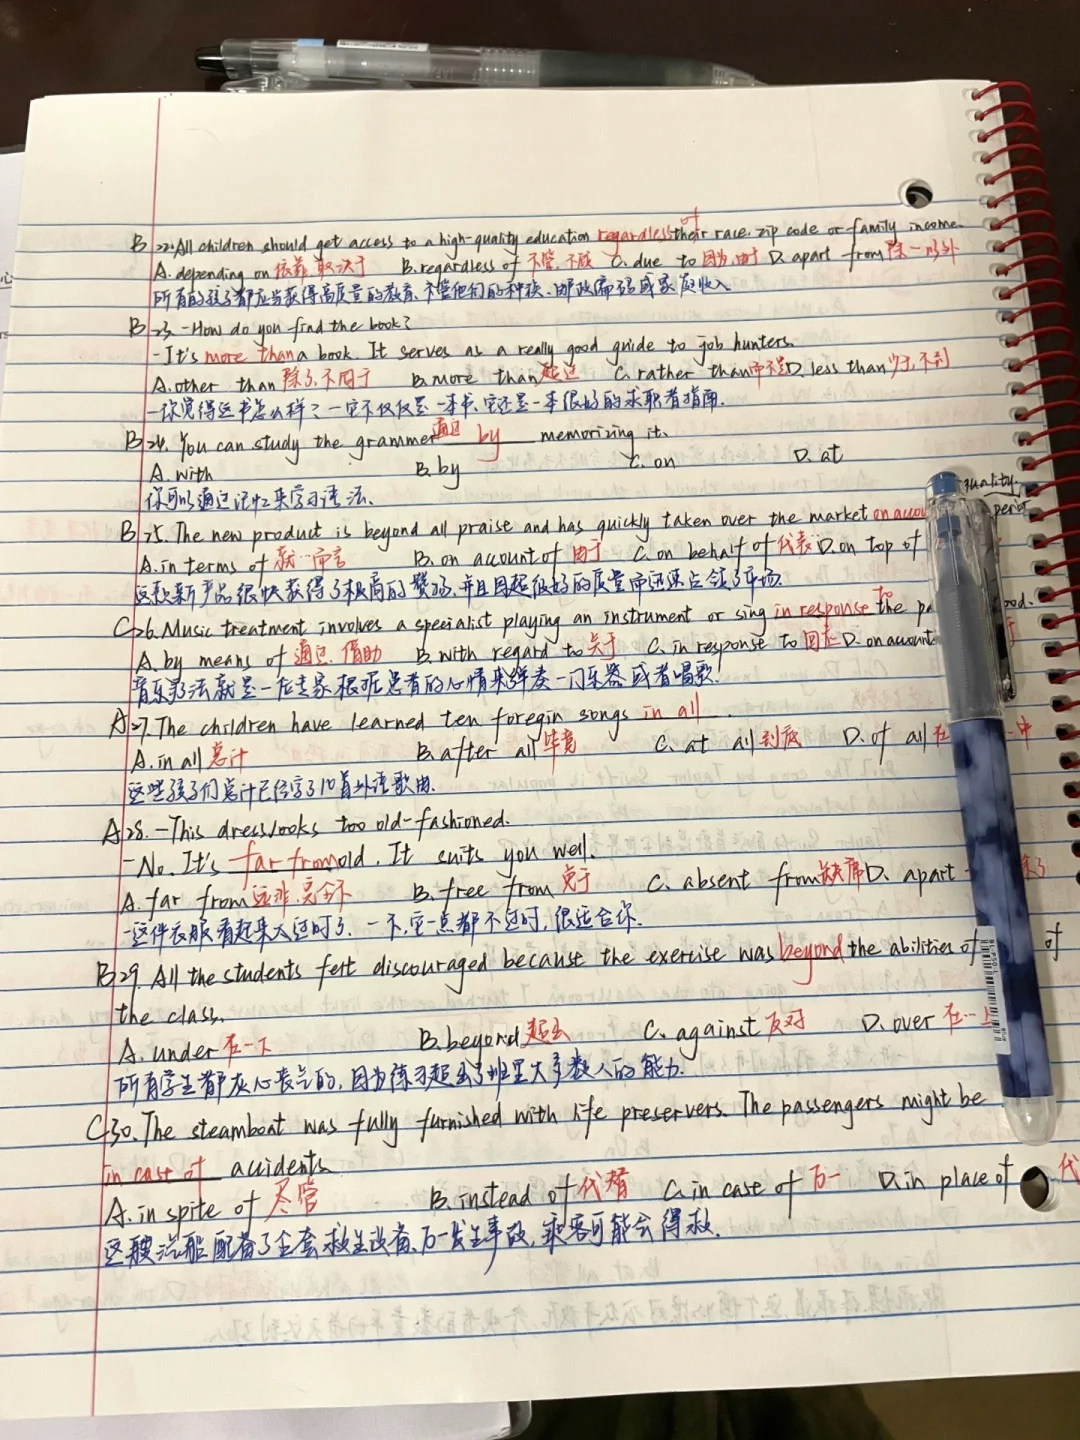 B 22. All children should get access to a high-quality education regardless of their race, zip code or family income.
A. depending on 依靠,取决于 B. regardless of 不管,不顾 C. due to 因为,由于 D. apart from 除…以外
所有的孩子都应当获得高质量的教育,不管他们的种族、邮政编码或家庭收入
B 23. -How do you find the book?
-It's more than a book. It serves as a really good guide to job hunters.
A. other than 除了,不同于 B. more than 超过 C. rather than 而不是 D. less than 少于,不到
-你觉得这书怎么样?-它不仅仅是一本书,它还是一本很好的求职者指南.
B 24. You can study the grammer 通过 by memorizing it.
A. with B. by C. on D. at
你可以通过记忆来学习语法.
quality.
B 25. The new product is beyond all praise and has quickly taken over the market on accou
A. in terms of 就…而言 B. on acount of 由于 C. on behalf of 代表 D. on top of
这款新产品很快获得了极高的赞扬,并且因超级好的质量而迅速占领了市场.
C 26. Music treatment involves a specialist playing an instrument or sing in response to the pa ood.
A. by means of 通过,借助 B. with regard to 关于 C. in response to 回应 D. on account
音乐疗法就是一位专家根据患者的心情来弹奏一门乐器或者唱歌.
A 27. The children have learned ten foregin songs in all.
A. in all 总计 B. after all 毕竟 C. at all 到底 D. of all 在 中
这些孩子们总计已经学了10首外语歌曲.
A 28. -This dress looks too old-fashioned.
-No. It's far from old. It suits you well.
A. far from 远非,完全不 B. free from 免于 C. absent from 缺席 D. apart 除了
-这件衣服看起来太过时了. -不,它一点都不过时,很适合你.
B 29. All the students felt discouraged because the exercise was beyond the abilities of of
the class.
A. under 在…下 B. beyond 超出 C. against 反对 D. over 在…上
所有学生都灰心丧气的,因为练习超出了班里大多数人的能力.
C 30. The steamboat was fully furnished with life preservers. The passengers might be
in case of accidents.
A. in spite of 尽管 B. instead of 代替 C. in case of 万一 D. in place of 代
这艘汽船配备了全套救生设备,万一发生事故,乘客可能会得救.